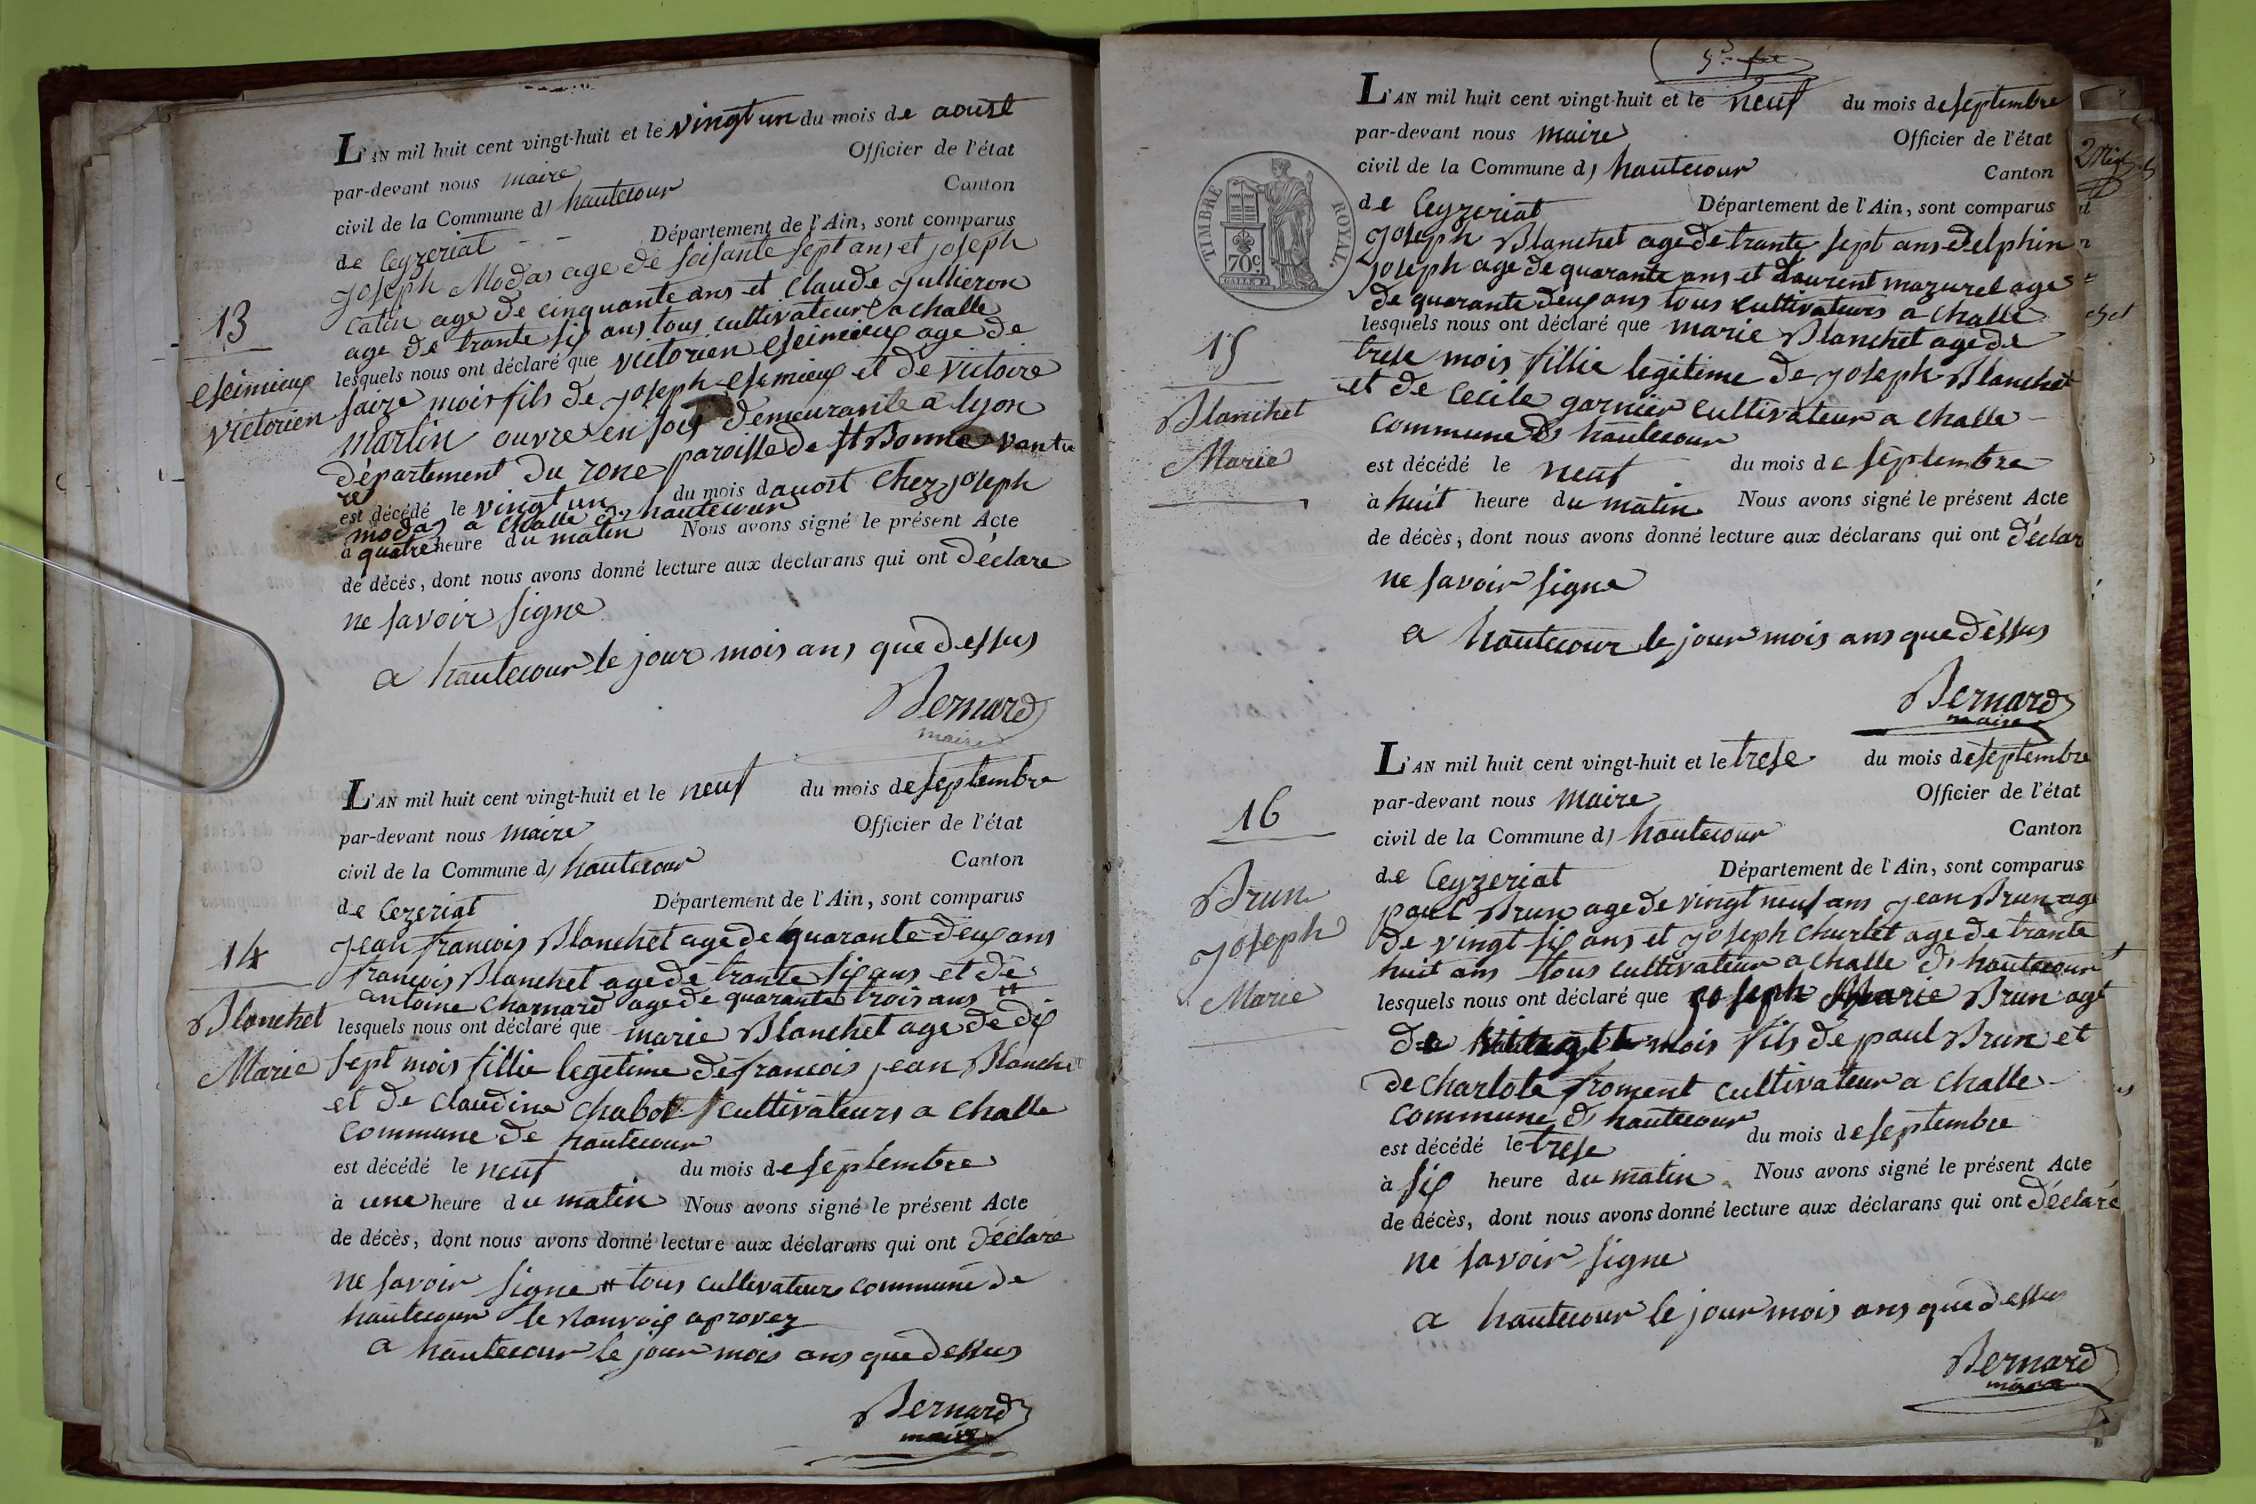 L'AN mil huit cent vingt-huit et le vingt un du mois de aoust
par-devant nous maire Officier de l'état
civil de la Commune d) hautecour Canton
de Ceyzeriat Département de l'Ain, sont comparus
joseph Modas age de soisante sept ans et joseph
catin age de cinquante ans et Claude jullieron
age de trante six ans tous cultivateur a challe
13
eseimieux
victorien
lesquels nous ont déclaré que victorien eseimieux age de
saize mois fils de joseph esemieux et de victoire
martin ouvre en soix demeurante a lyon
département du rone paroisse de st Bonne vantu
re
est décédé le vingt un du mois d auost chez joseph
modas a challe d hautecour
à quatre heure du matin Nous avons signé le présent Acte
de décès, dont nous avons donné lecture aux déclarans qui ont déclare
ne savoir signe
a hautecour le jour mois ans que dessus
Bernard
maire
L'AN mil huit cent vingt-huit et le neuf du mois de septembre
par-devant nous maire Officier de l'état
civil de la Commune d) hautecour Canton
de Cezeriat Département de l'Ain, sont comparus
jean francois Blanchet age de quarante deux ans
francois Blanchet age de trante six ans et de
antoine charnard age de quarante trois ans #
14
Blanchet
Marie
lesquels nous ont déclaré que marie Blanchet age de dix
sept mois fillie legetime de francois jean Blanchet
et de claudine chabot cultivateurs a challe
commune de hautecour
est décédé le neuf du mois de septembre
à une heure du matin Nous avons signé le présent Acte
de décès, dont nous avons donné lecture aux déclarans qui ont déclaré
ne savoir signe # tous cultivateurs commune de
hautecour le ranvoix aprovez
a hautecour le jour mois ans que dessus
Bernard
maire
TIMBRE ROYAL.
70c
L'AN mil huit cent vingt-huit et le neuf du mois de septembre
par-devant nous maire Officier de l'état
civil de la Commune d) hautecour Canton
de Ceyzeriat Département de l'Ain, sont comparus
joseph Blanchet age de trante sept ans delphin
joseph age de quarante ans et laurent mazuret age
de quarante deux ans tous cultivateurs a challe
15
Blanchet
Marie
lesquels nous ont déclaré que marie Blanchet age de
trese mois fillie legitime de joseph Blanchet
et de Cecile garnier cultivateur a challe
commune d hautecour
est décédé le neuf du mois de septembre
à huit heure du matin Nous avons signé le présent Acte
de décès, dont nous avons donné lecture aux déclarans qui ont déclar
ne savoir signe
a hautecour le jour mois ans que dessus
Bernard
maire
L'AN mil huit cent vingt-huit et le trese du mois de septembre
par-devant nous maire Officier de l'état
civil de la Commune d) hautecour Canton
de Ceyzeriat Département de l'Ain, sont comparus
paul Brun age de vingt neuf ans jean Brun age
de vingt six ans et joseph churlet age de trante
huit ans tous cultivateur a challe d hautecour
16
Brun
joseph
Marie
lesquels nous ont déclaré que joseph Marie Brun age
de mois fils de paul Brun et
de charlote froment cultivateur a challe
commune d hautecour
est décédé le trese du mois de septembre
à six heure du matin Nous avons signé le présent Acte
de décès, dont nous avons donné lecture aux déclarans qui ont déclaré
ne savoir signe
a hautecour le jour mois ans que dessus
Bernard
maire